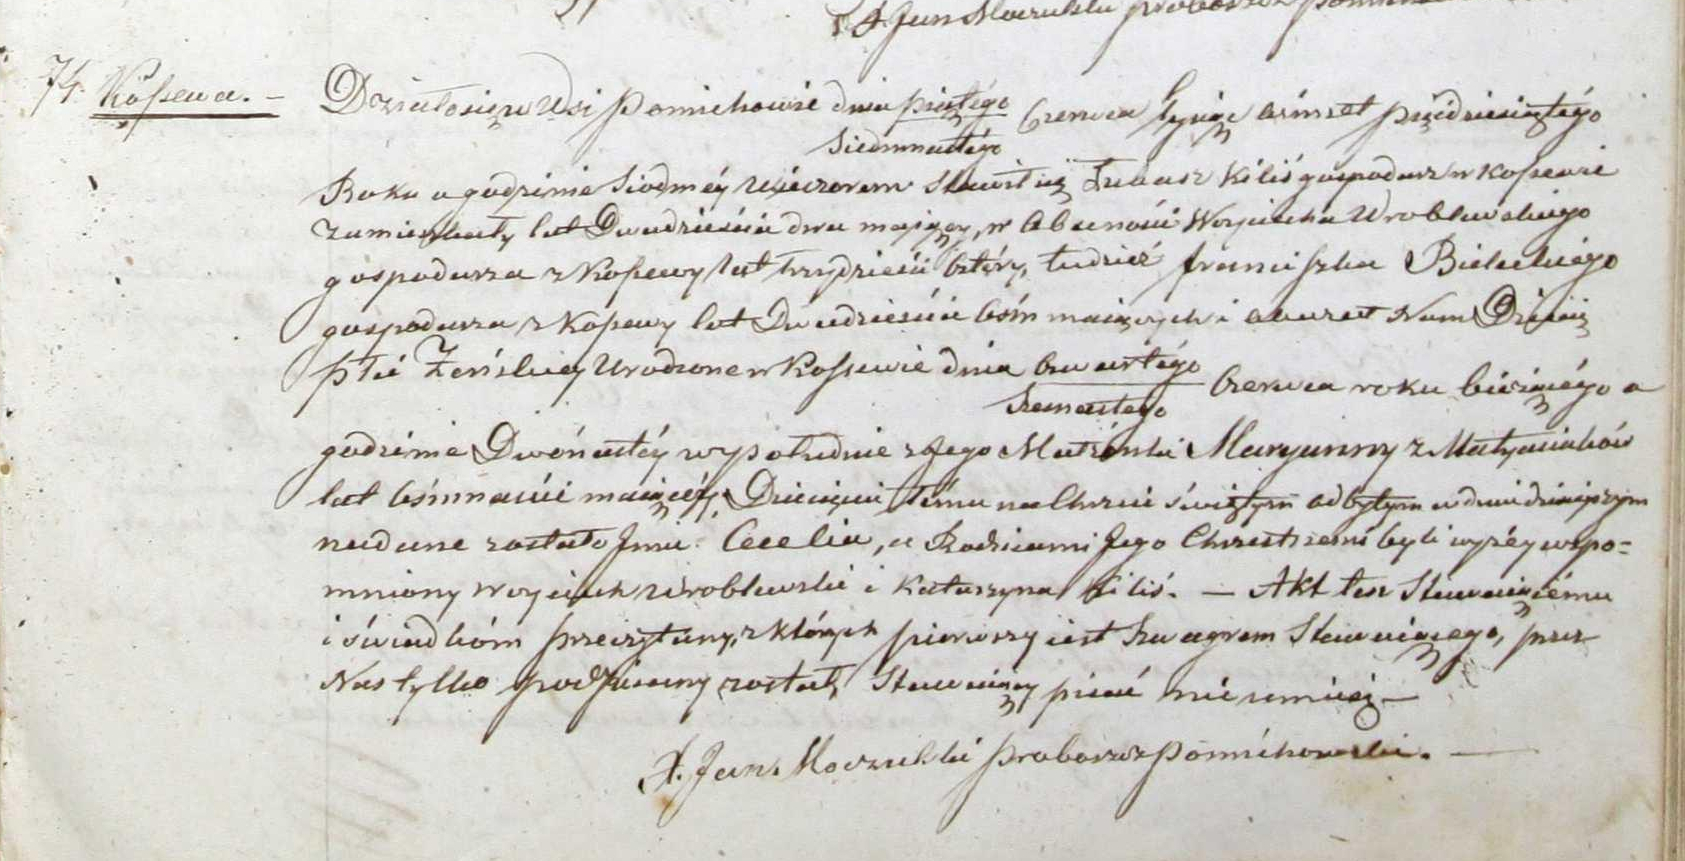 X. Jan Moczulski proboszcz
74. Kossewa. -
Działo się w Wsi Pomichowie dnia piątego Czerwca tysiąc ośmset pięćdziesiątego
Siedmnastego
Roku o godzinie Siódméy wieczorem Stawił się Łukasz Kiliś gospodarz w Kossewie
zamieszkały lat Dwadzieścia dwa maiący, w Obecności Woyciecha Wroblewskiego
gospodarza z Kossewy lat trzydzieści cztéry, tudzież Franciszka Bieleckiego
gospodarza z Kossewy lat Dwadzieścia ośm maiących i okazał Nam Dziecię
płci Żeńskiey Urodzone w Kossewie dnia czwartégo Czerwca roku bieżącégo o
Szesnastego
godzinie Dwónastéy w południe z Jego Małżonki Maryanny z Matysiaków
lat ośmnaście maiącéy, Dziecięciu Tému na Chrzcie świętym odbytym w dniu dzisiejszym
nadane zostało Jmie Cecelia, a Rodzicami Jego Chrzestnemi byli wyżéy wspo=
mniony Woyciech Wroblewski i Katarzyna Kiliś. — Akt ten Stawaiącému
i świadkóm przeczytany, z których pierwszy iest Szwagrem Stawaiącego, przez
Nas tylko podpisany został, Stawaiący pisać nie umieią —
X. Jan Moczulski Proboszcz Pomichowski. —